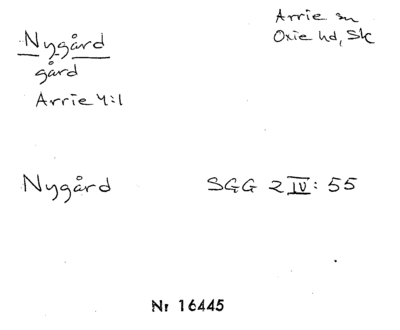 Nygård
Arrie sn
Oxie hd, Sk
gård
Arrie 4:1
Nygård SGG 2 IV: 55
Nr 16445